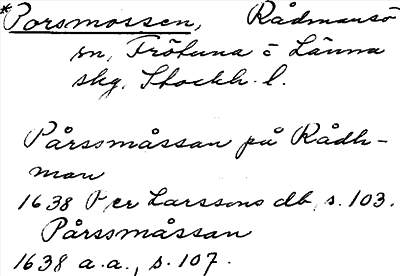 *Porsmossen, Rådmansö
sn, Frötuna o Länna
skg, Stockh. l.
Pårssmåssan på Rådh-
man
1638 Per Larssons db, s. 103.
Pårssmåssan
1638 a.a., s. 107.